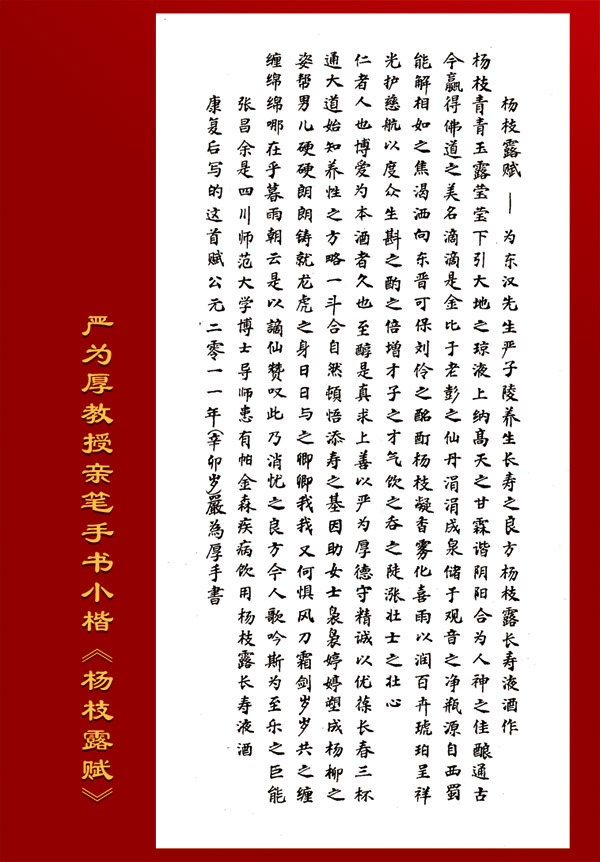 杨枝露赋——为东汉先生严子陵养生长寿之良方杨枝露长寿液酒作
杨枝青青玉露莹莹下引大地之琼液上纳高天之甘霖谐阴阳合为人神之佳酿通古
今赢得佛道之美名滴滴是金比于老彭之仙丹涓涓成泉储于观音之净瓶源自西蜀
能解相如之焦渴洒向东晋可保刘伶之酩酊杨枝凝香雾化喜雨以润百卉琥珀呈祥
光护慈航以度众生斟之酌之倍增才子之才气饮之吞之陡涨壮士之壮心
仁者人也博爱为本酒者久也至醇是真求上善以严为厚德守精诚以优葆长春三杯
通大道始知养性之方略一斗合自然顿悟添寿之基因助女士袅袅婷婷塑成杨柳之
姿帮男儿硬硬朗朗铸就龙虎之身日日与之卿卿我我又何惧风刀霜剑岁岁共之缠
缠绵绵哪在乎暮雨朝云是以谪仙赞叹此乃消忧之良方今人歌吟斯为至乐之巨能
张昌余是四川师范大学博士导师患有帕金森疾病饮用杨枝露长寿液酒
康复后写的这首赋公元二零一一年(辛卯岁)嚴為厚手書
严为厚教授亲笔手书小楷《杨枝露赋》